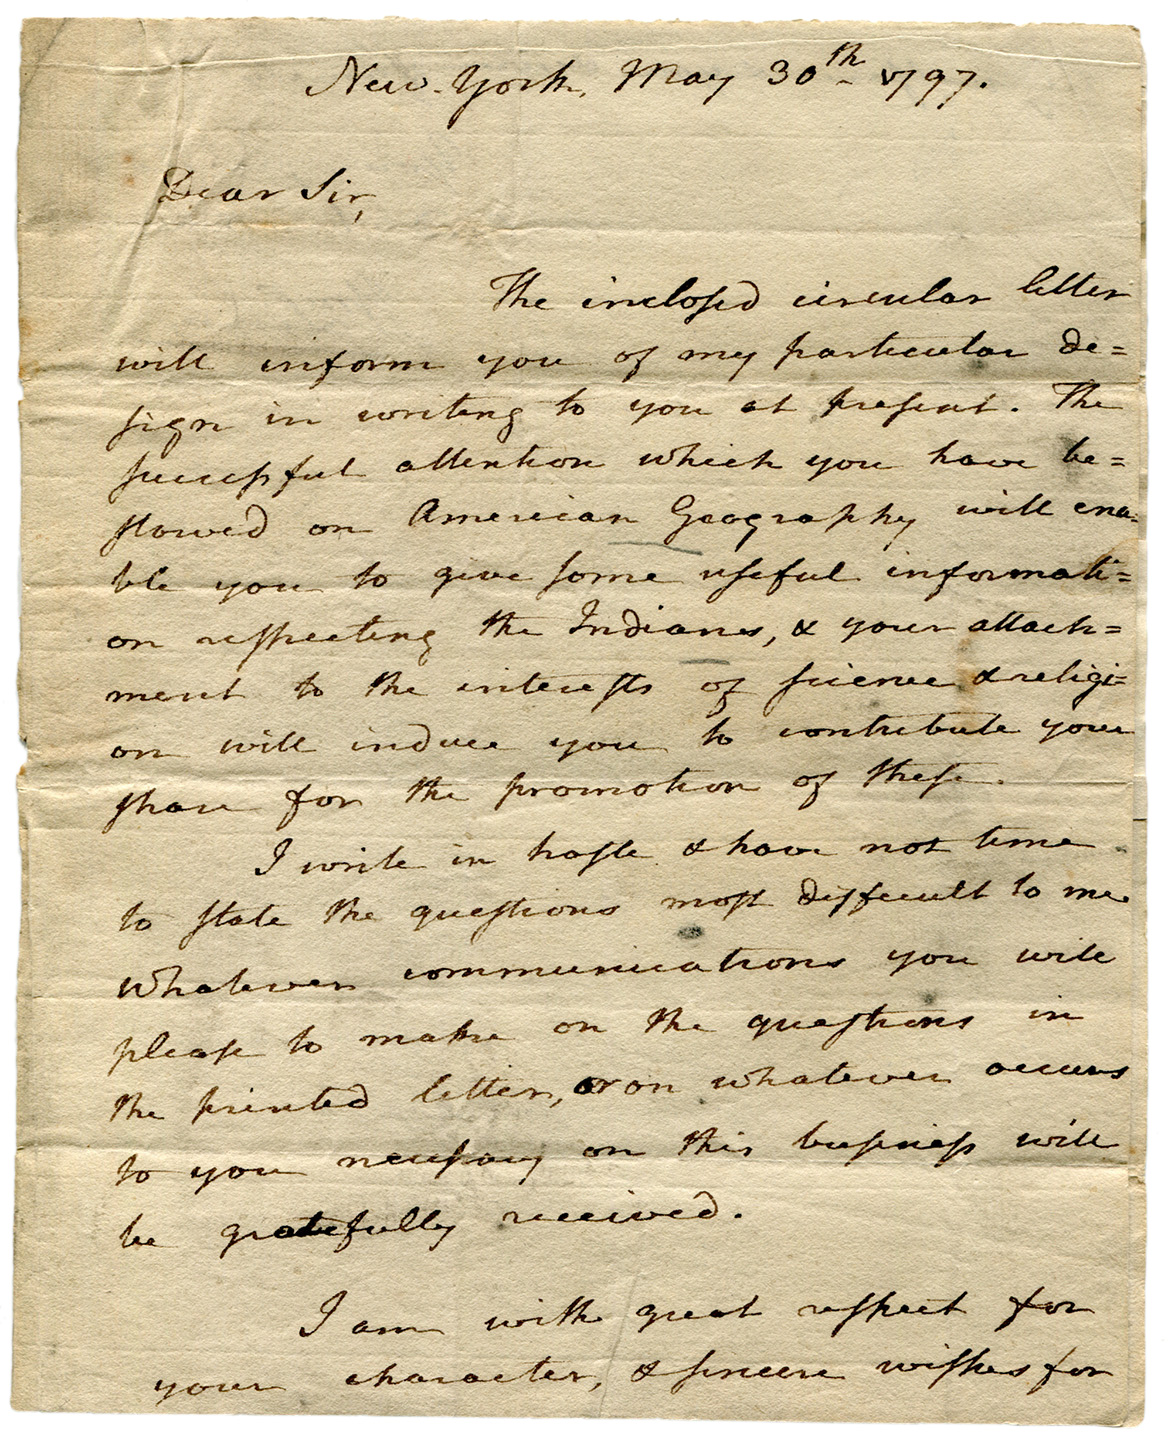 New-York, May 30th 1797.
Dear Sir,
The inclosed circular letter
will inform you of my particular de=
sign in writing to you at present. The
successful attention which you have be=
stowed on American Geography will ena=
ble you to give some useful informati=
on respecting the Indians, & your attach=
ment to the interests of science & religi=
on will induce you to contribute your
share for the promotion of these.
I write in haste & have not time
to state the questions most difficult to me.
Whatever communications you will
please to make on the questions in
the printed letter, or on whatever occurs
to you necessary on this business will
be gratefully received.
I am with great respect for
your character, & sincere wishes for